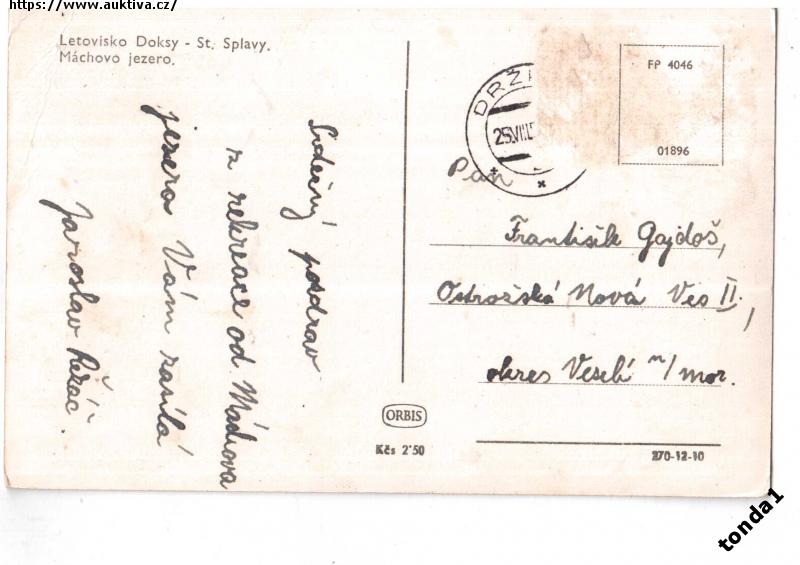 https://www.auktiva.cz/
Letovisko Doksy - St. Splavy.
Máchovo jezero.
Srdečný pozdrav
z rekreace od Máchova
jezera Vám zasílá
Jaroslav Řeřáč.
DRŽ
25.VII.
FP 4046
01896
Pan
František Gajdoš,
Ostrožská Nová Ves II,
okres Veselí n/mor.
ORBIS
Kčs 2'50
270-12-10
tonda1